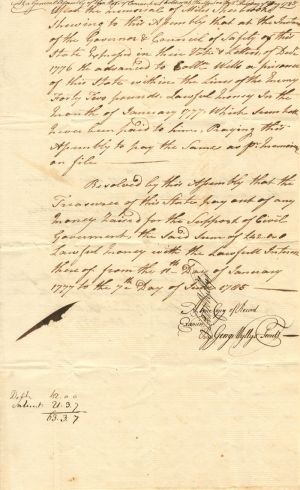 Upon the Memorial of
Shewing to this Assembly that at the
of the Governor & Council of Safety of this
State Expressed in their Vote & Letter of Decr
1776 He advanced to Wells a prisoner
of this State within the Lines of the Enemy
Forty Two pounds Lawful Money in the
Month of January 1777 Which Sum hath
never been paid to him, Praying this
Assembly to pay the Same as pr Memorial
on file
Resolved by this Assembly that the
Treasurer of this State pay out of any
Money raised for the Support of Civil
Government the said Sum of £42.0.0
Lawful Money with the Lawfull Interest
thereof from the Day of January
1777 to the 7th Day of June 1785
A true Copy of Record
Examind
By George Wyllys Secretr
Debt 42.0.0
Interest 21.3.7
63.3.7